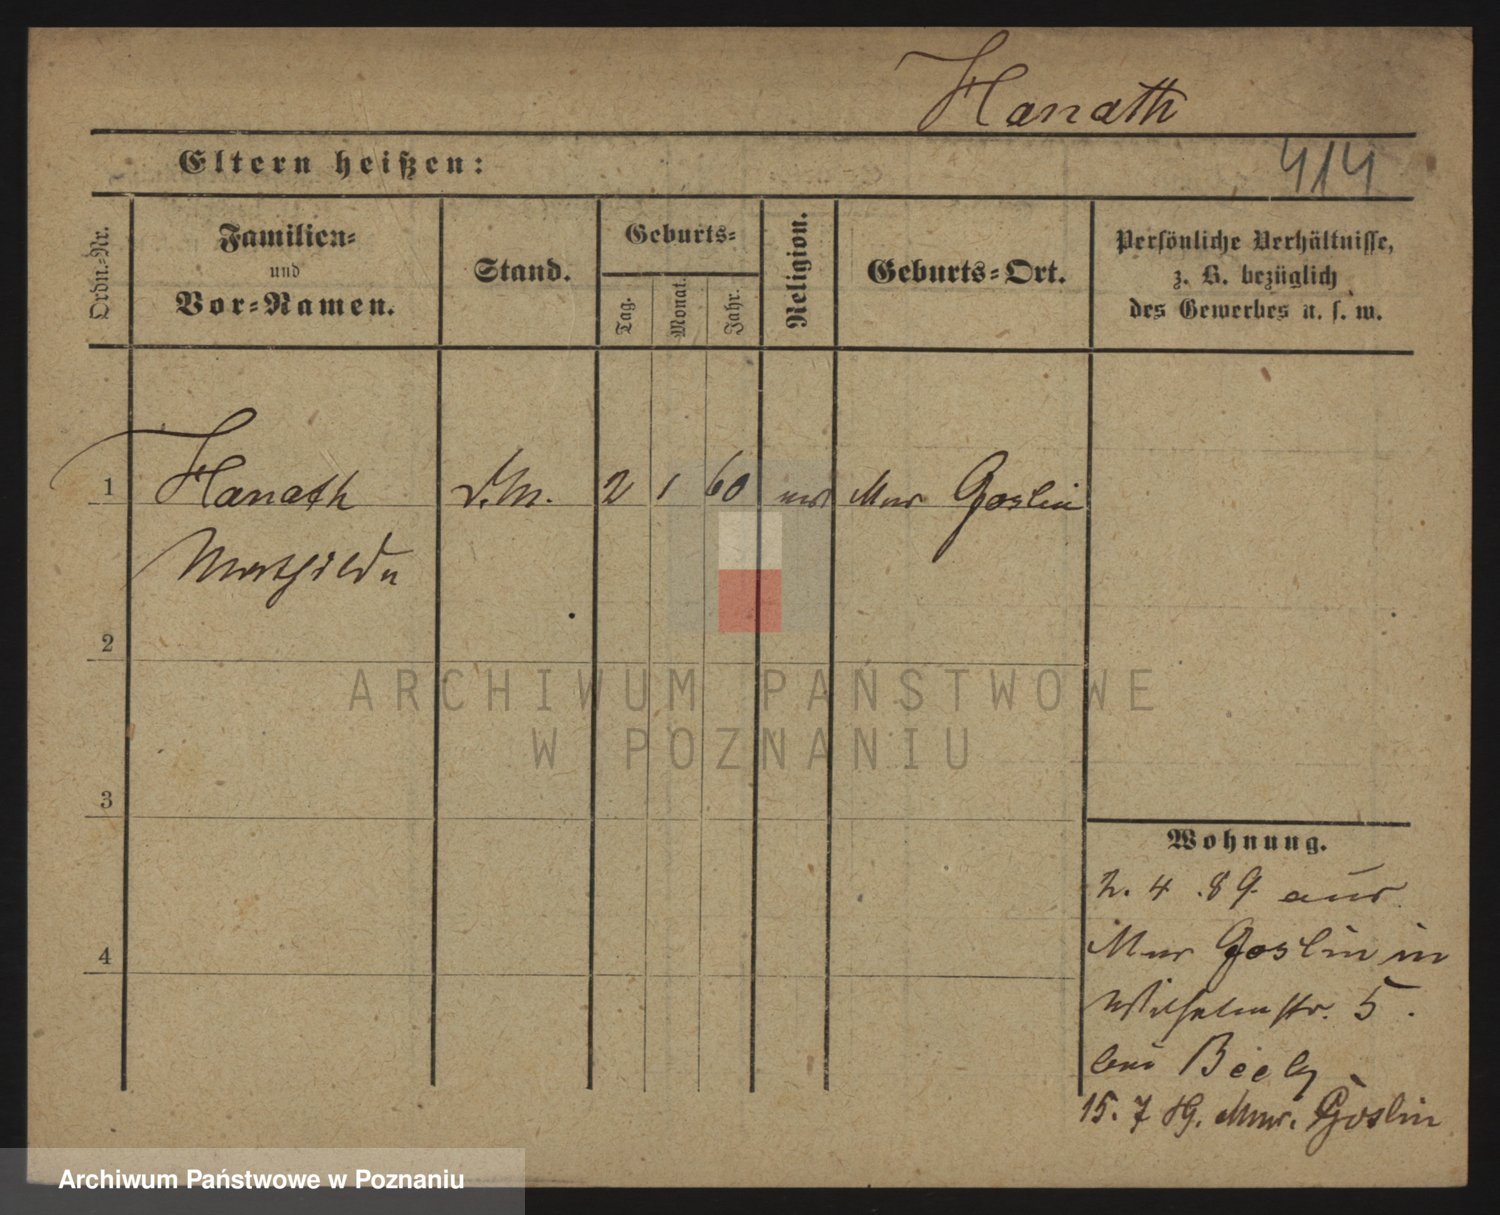 Hanath
Eltern heißen:
414
Ordn.-Nr.
Familien-
und
Vor-Namen.
Stand.
Geburts-
Tag.
Monat.
Jahr.
Religion.
Geburts-Ort.
Persönliche Verhältnisse,
z. B. bezüglich
des Gewerbes u. s. w.
1 Hanath D.M. 2 1 60 Mur Goslin
Mathilde
2
3
4
ARCHIWUM PAŃSTWOWE
W POZNANIU
Wohnung.
2. 4. 89. aus
Mur Goslin in
Wilhelmstr. 5.
bei Beely
15. 7 89. Mur. Goslin
Archiwum Państwowe w Poznaniu